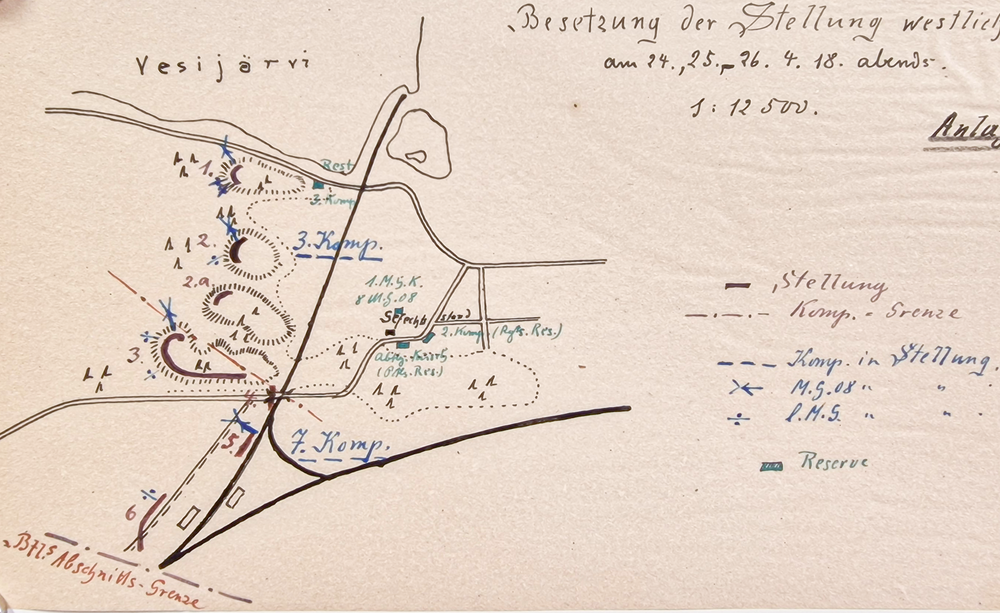 Besetzung der Stellung westlich
am 24., 25., 26. 4. 18. abends.
1: 12 500.
Anla
Vesijärvi
1.
Rest
3. Komp.
2.
3. Komp.
2.a
1. M.G.K.
8 M.G.08
Gefechtsstand
2. Komp. (Rgts. Res.)
(Btls. Res.)
3.
4.
5.
7. Komp.
6
Btl.s Abschnitts-Grenze
Stellung
Komp.-Grenze
Komp. in Stellung.
M.G.08 " " .
l.M.G. " " .
Reserve